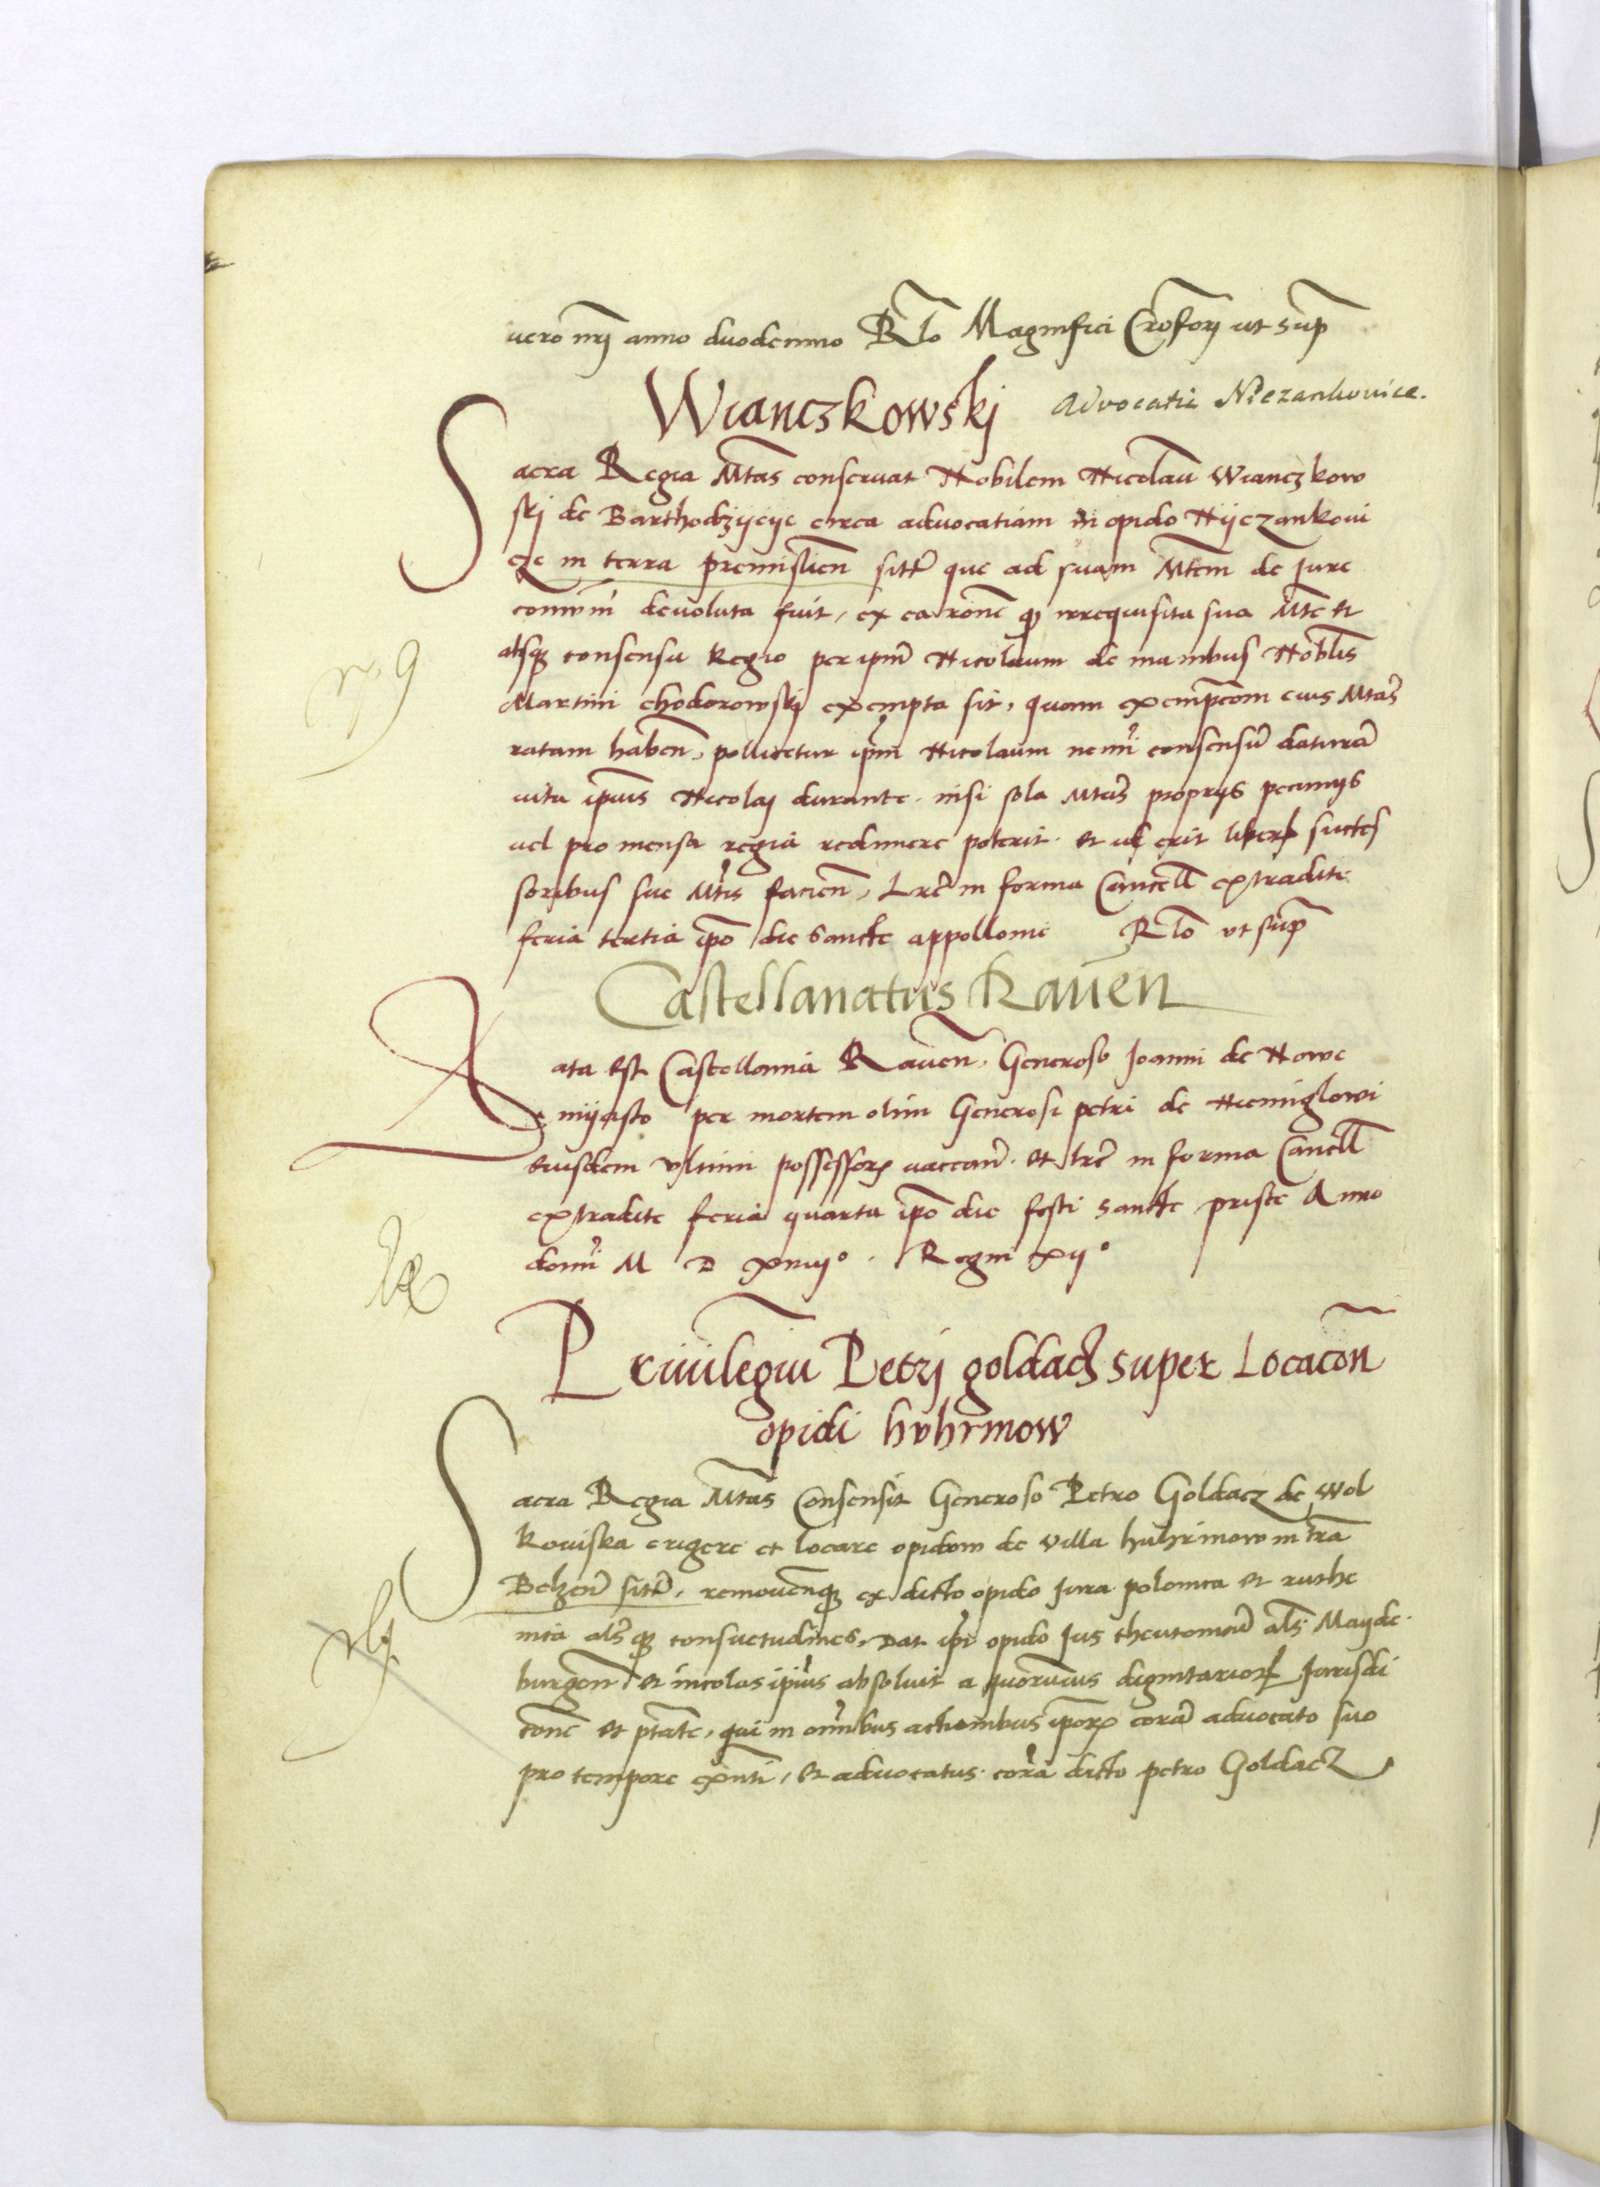 vero nri anno duodecimo Rlo Magnifici Crofori ut supr
Wianczkowski Advocatia Niezankovice.
Sacra Regia Mtas conservat Nobilem Nicolau Wianczkow
skj de Barthodzyeije circa advocatiam in opido Nijezankovi
cze in terra premislien sitt que ad suam Mtem de Jure
devoluta fuit, ex ea rone qz irrequisita sua Mte et
absqz consensu Regio per ipm Nicolaum de manibus Noblis
Martini chodorowskj exempta sit, quam exempcom eius Mtas
ratam haben, pollicetur ipm Nicolaum nemi consensu datura
vita ipius Nicolaj durante. nisi sola Mtas proprijs pecunijs
vel pro mensa regia redimere poterit. et id erit liberu succes
soribus sue Mtis facien, Lre in forma Cancell extradite
feria tertia ipo die Sancte appollonie Rlo vt supr
Castellanatus Raven
Data est Castellania Raven, Generoso Joanni de Nowe
mijasto per mortem olim Generosi petri de Niemiglowi
eiusdem vltimi possessoris vaccan. et lre in forma Cancell
extradite feria quarta ipo die festi sancte prisce Anno
domi M D xiiiijo. Regni xijo
Privilegiu Petrj goldacz super Locacon
opidi hvhrinow
Sacra Regia Mtas Consensit Generoso Petro Goldacz de Wol
koviska erigere et locare opidum de villa huhrinow in tra
Belzen sitt, removenqz ex dicto opido Jura polonica et ruthe
nica alsqz consuetudines, Dat ipi opido Jus theutonicu als Mayde
burgen et incolas ipius absolvit a quorumcus dignitarior Jurisdi
cone et ptate, qui in omibus actionibus ipor cora advocato suo
pro tempore exnti, et advocatus cora dicto petro Goldacz